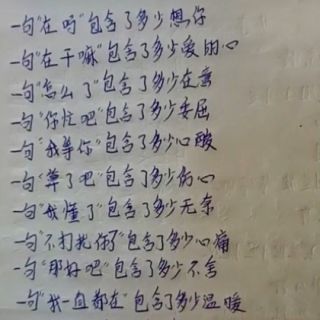 一句"在吗"包含了多少想你
一句"在干嘛"包含了多少爱的心
一句"怎么了"包含了多少在意
一句"你忙吧"包含了多少委屈
一句"我等你"包含了多少心酸
一句"算了吧"包含了多少伤心
一句"我懂了"包含了多少无奈
一句"不打扰你了"包含了多少心痛
一句"那好吧"包含了多少不舍
一句"我一直都在"包含了多少温暖